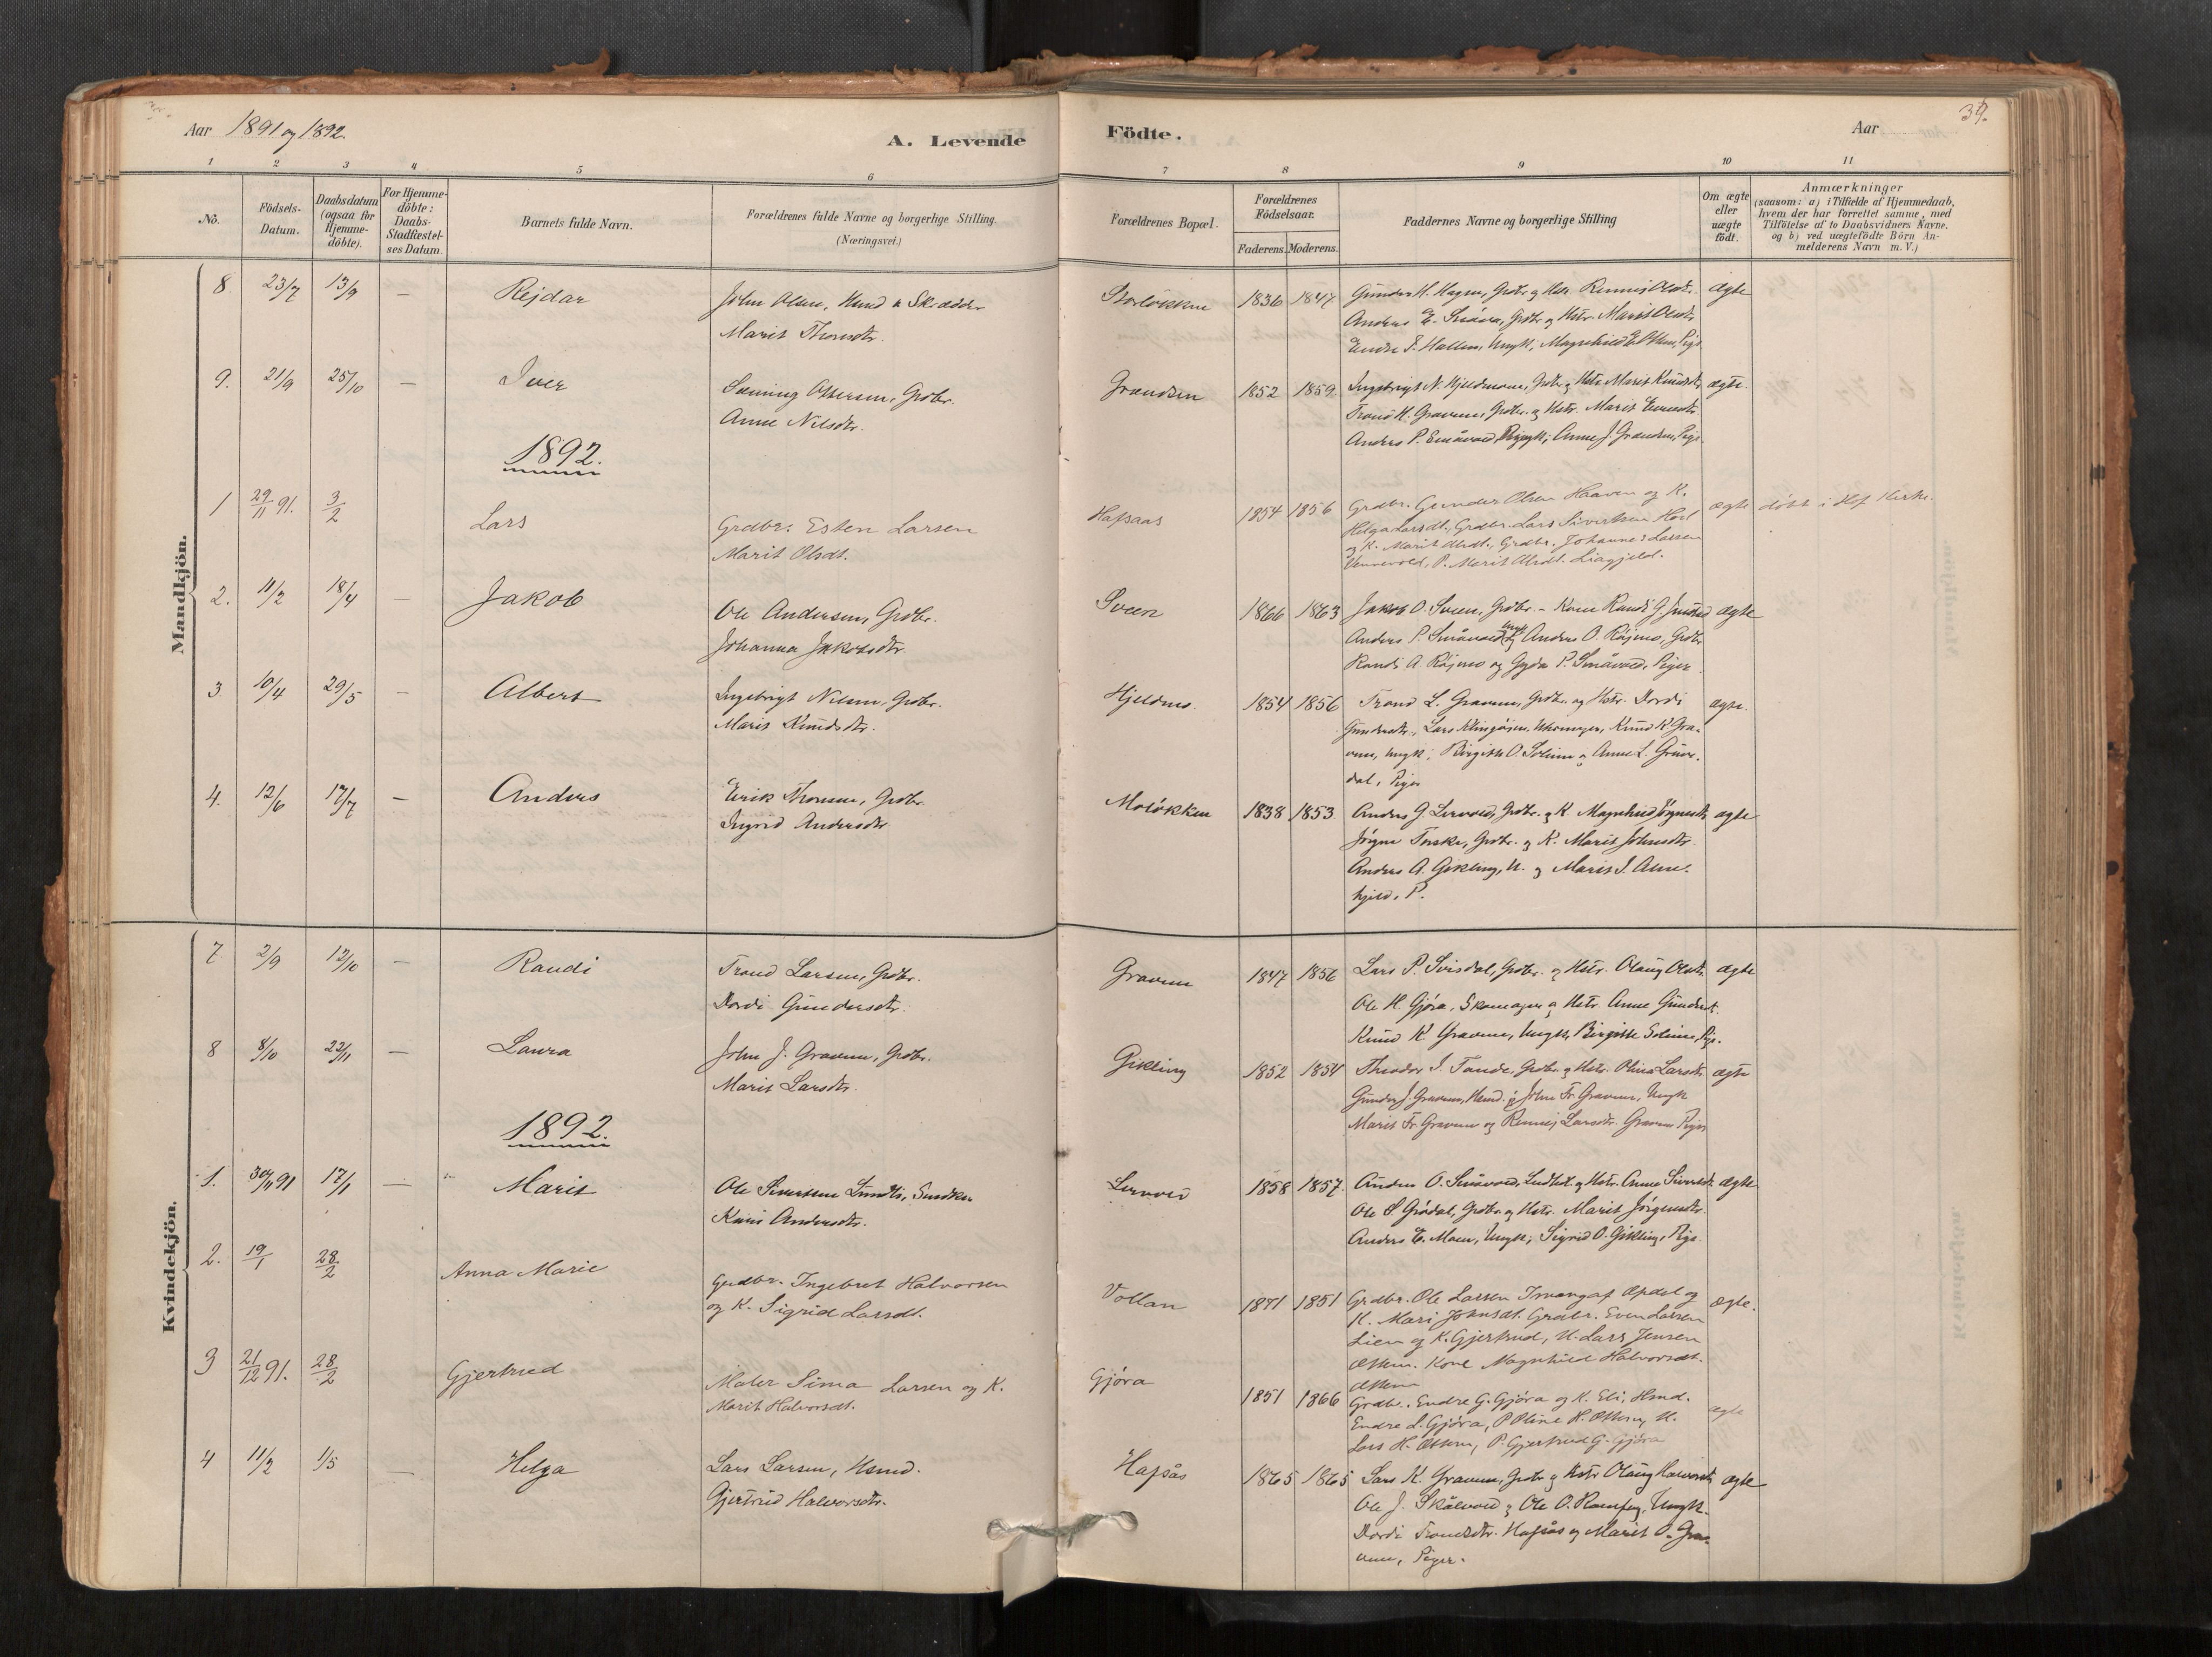 39.
Aar 1891 og 1892.
A. Levende Födte.
Aar
1 2 3 4 5 6 7 8 9 10 11
No.
Födsels-Datum.
Daabsdatum (ogsaa for Hjemme-döbte).
For Hjemme-döbte: Daabs-Stadfæstel-ses Datum.
Barnets fulde Navn.
Forældrenes fulde Navne og borgerlige Stilling. (Næringsvei.)
Forældrenes Bopæl.
Forældrenes Födselsaar.
Faderens. Moderens.
Faddernes Navne og borgerlige Stilling
Om ægte eller uægte födt.
Anmærkninger
(saasom: a) i Tilfælde af Hjemmedaab,
hvem der har forrettet samme, med
Tilföielse af to Daabsvidners Navne,
og b) ved uægtefödte Börn An-
melderens Navn m. V.)
Mandkjön.
8 23/7 13/9 — Rejdar
John Olsen, Hmd & Skrædder
Marit Thorsdtr.
Storløkken 1836 1847
Gunder H. Hagen, Grdbr. og Hstr. Rennei Olsdtr. ægte
Anders E. Snöva, Grdbr. og Hstr. Marit Olsdtr.
Endre P. Hallen, Ungk., Magnhild E. Pige
9. 21/9 25/10 — Iver
Ottersen, Grdbr.
Anne Nilsdtr.
Grandsen 1852 1859
Ingebrigt N. Hjeldmoen, Grdbr. og Hstr. Marit Knudsdtr. ægte.
Trond K. Gravem, Grdbr. og Hstr. Marit
Anders P. Småvold, Ungk., Anne J. Grandsen, Pige
1892.
1 29/11 91. 3/2 Lars
Grdbr. Esten Larsen
Marit Olsdt.
Hafsaas 1854 1856
Grdbr. Gunder Olsen Haaven og K. ægte döbt i Hof Kirke.
Helga Larsdt., Grdbr. Lars Sivertsen Hoel
og K. Marit Olsdt., Grdbr. Johannes Larsen
Vennevold, P. Marit Olsdt. Liagjeld.
2. 11/2 18/4 — Jakob
Ole Andersen, Grdbr.
Johanna Jakobsdtr.
Sveen 1866 1863
Jakob O. Sveen, Grdbr. - Kone Randi G. ægte
Anders P. Småvold Ungk. og Anders O. Röjmo, Grdbr.
Randi A. Röjmo og Gyda P. Småvold, Piger
3. 10/4 29/5 — Albert
Ingebrigt Nilsen, Grdbr.
Marit Knudsdtr.
Hjeldmo. 1854 1856
Trond L. Gravem, Grdbr. og Hstr. Dordi ægte.
Gundersdtr., Lars Klingöjen, Uhrmager, Knud K. Gra-
vem, Ungk., Birgitte O. Solium og Anne L. Gruve-
dal, Piger
4. 12/6 17/7 — Anders
Eirik Thorsen, Grdbr.
Ingrid Andersdtr.
Moløkken 1838 1853
Anders G. Lervold, Grdbr. og K. Magnhild Jörgensdtr. ægte
Jörgen Torske, Grdbr. og K. Marit Johnsdtr.
Anders A. Gikling, U. og Marit J. Alme-
hjeld, P.
Kvindekjön.
7 2/9 12/10 — Randi
Trond Larsen, Grdbr.
Dordi Gundersdtr.
Gravem 1847 1856
Lars P. Svisdal, Grdbr. og Hstr. Olaug Olsdtr. ægte
Ole H. Gjöra, Skomager og Hstr. Anne Gundersdtr.
Knud K. Gravem, Ungk., Birgitte Solium, Pige.
8 8/10 22/11 — Laura
John J. Gravem, Grdbr.
Marit Larsdtr.
Gikling 1852 1854
Theodor I. Tande, Grdbr. og Hstr. Olina Larsdtr. ægte
Gunder J. Gravem, Hmd. og John Fr. Gravem, Ungk.
Marit Fr. Gravem og Rennei Larsdtr. Gravem Piger
1892.
1. 30/11 91 17/1 — Marit
Ole Sivertsen Lundli, Snedker
Kari Andersdtr.
Lervold 1858 1857.
Anders O. Småvold, og Hstr. Anne Sivertsdtr. ægte
Ole S. Grödal, Grdbr. og Hstr. Marit Jörgensdtr.
Anders E. Moen, Ungk., Sigrid O. Gikling, Pige.
2. 19/1 28/2 Anna Marie
Grdbr. Ingebret Halvorsen
og K. Sigrid Larsdt.
Vollan 1871 1851
Grdbr. Ole Larsen Tovangat Opdal og ægte.
K. Mari Johnsdt. Grdbr. Even Larsen
Lien og K. Gjertrud, U. Lars Jensen
Kone Magnhild Halvorsdt.
3 21/12 91. 28/2 Gjertrud
Maler Sima Larsen og K.
Marit Halvorsdt.
Gjöra 1851 1866
Grdbr. Endre G. Gjöra og K. Eli, Hmd. ægte
Endre L. Gjöra, P. Oline H. U.
Lars H. P. Gjertrud G. Gjöra
4 11/2 1/5 — Helga
Lars Larsen, Hsmd.
Gjertrud Halvorsdtr.
Hafsås 1865 1865
Lars K. Gravem, Grdbr. og Hstr. Olaug Halvorsdtr. ægte
Ole J. Skålvold og Ole O. Ungk.
Dordi Trondsdtr. Hafsås og Marit O. Gra-
vem, Piger.